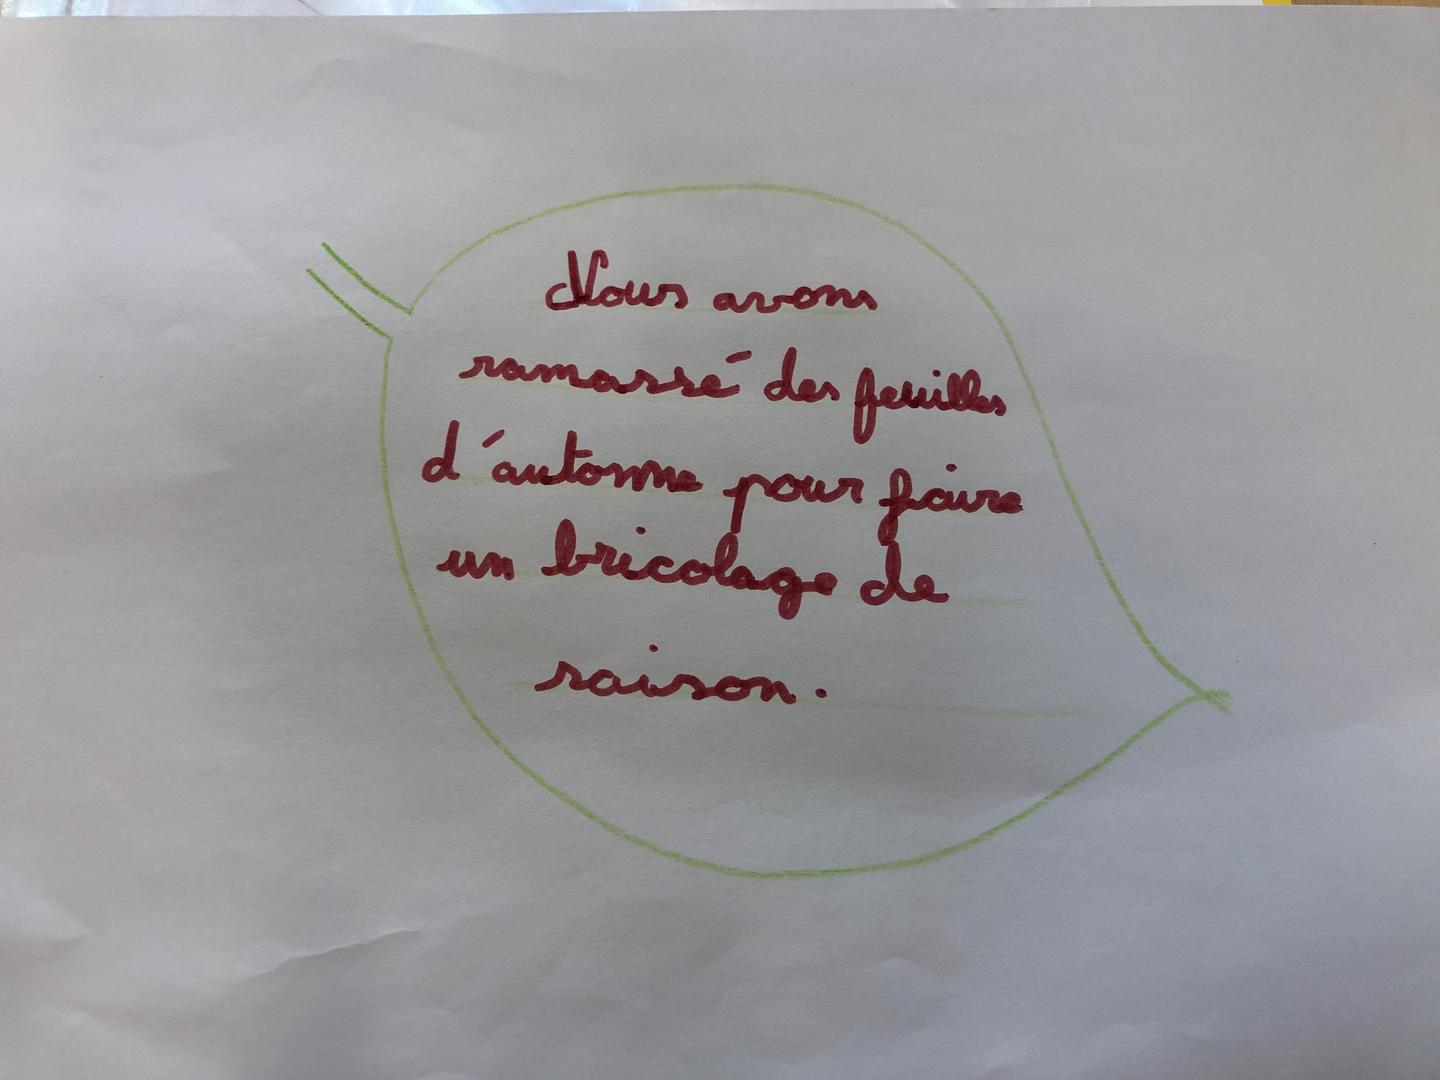 Nous avons
ramassé des feuilles
d'automne pour faire
un bricolage de
saison.